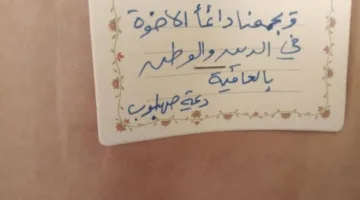 ويجمعنا دائماً الأخوة
في الدين والوطن
بالعافية
دمية صهلوب